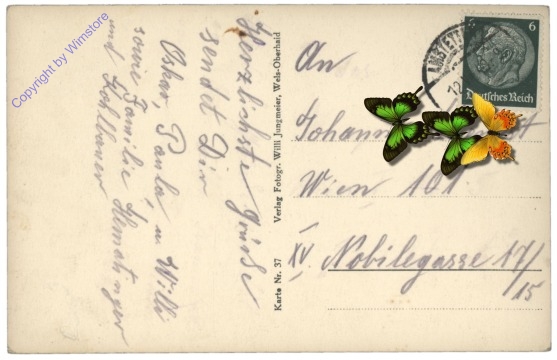 Copyright by Wimstore
Herzlichste Grüße
sendet Dir
Oskar, Paula u. Willi
sowie Familie
und
Verlag Fotogr. Willi Jungmeier, Wels-Oberhaid
Karte Nr. 37
6
Deutsches Reich
An
Johann
Wien 101
XV. Nobilegasse 17/
15